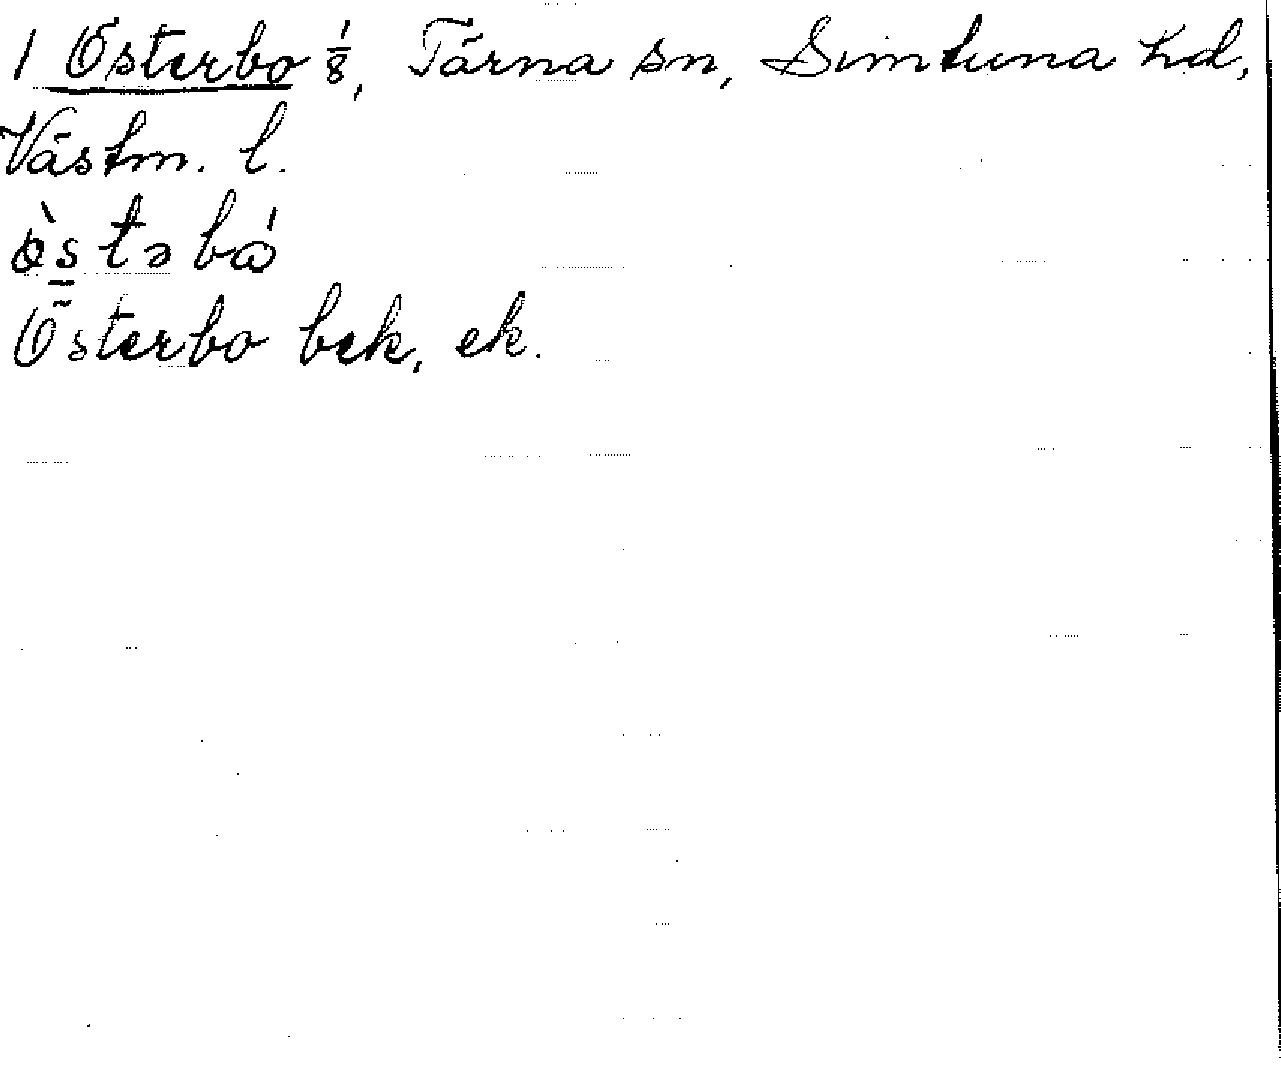 1 Österbo 1/8, Tärna sn, Simtuna hd,
Västm. l.
ö̀stəbǻ
Österbo bek, ek.